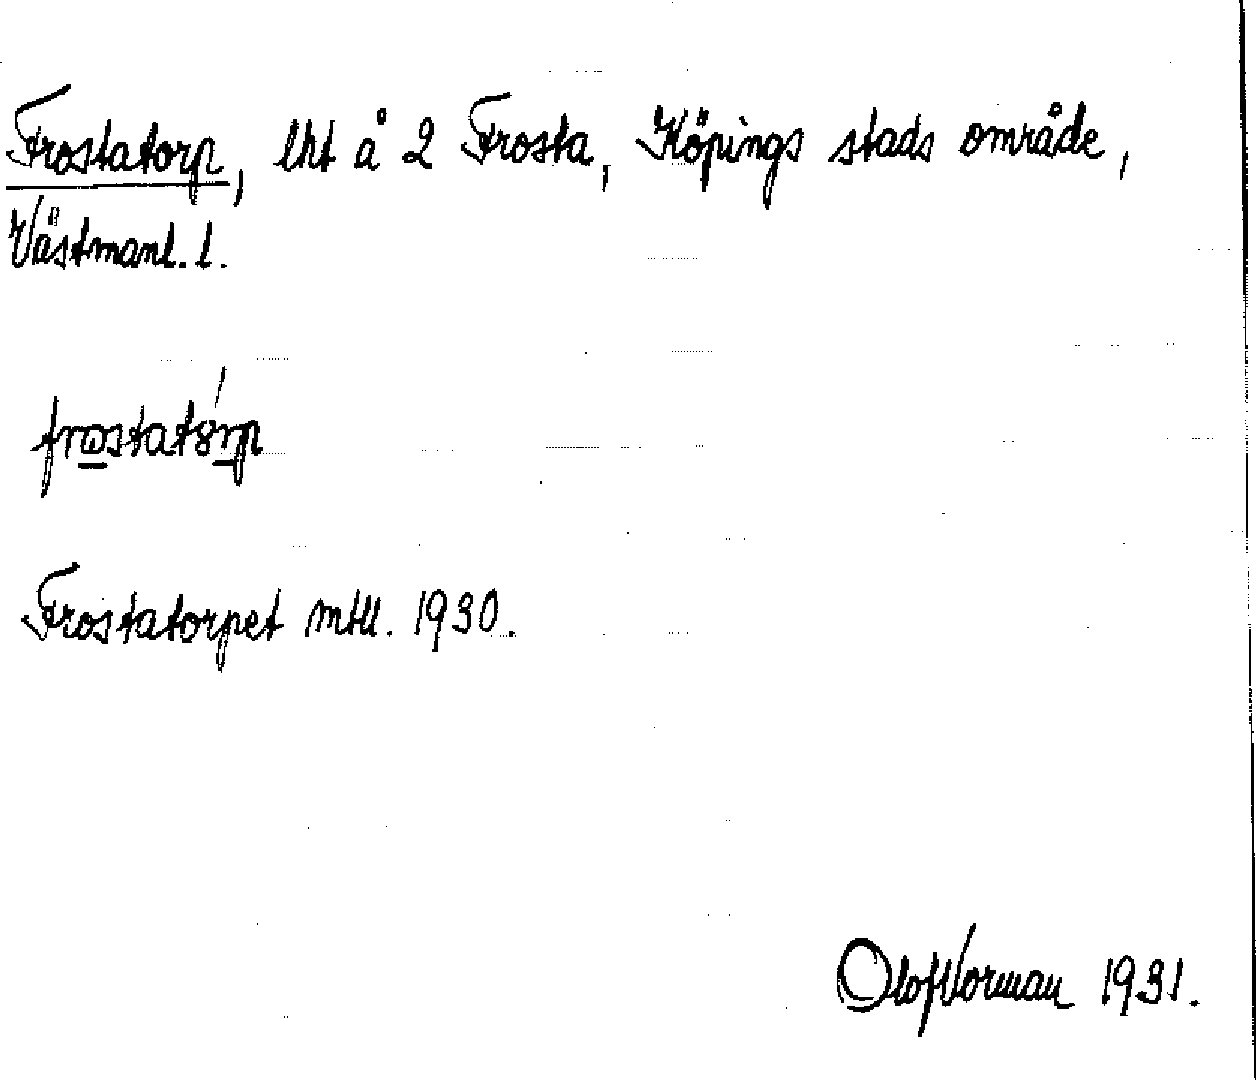 Frostatorp, lht å 2 Frosta, Köpings stads område,
Västmanl. l.
Frostatorpet mtll. 1930.
Olof Vorman 1931.